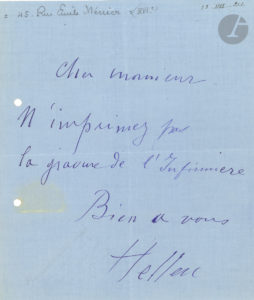 45. Rue Émile Ménier (XVIe)
Cher monsieur
N'imprimez pas
la gravure de l'Infirmière
Bien a vous
Helleu